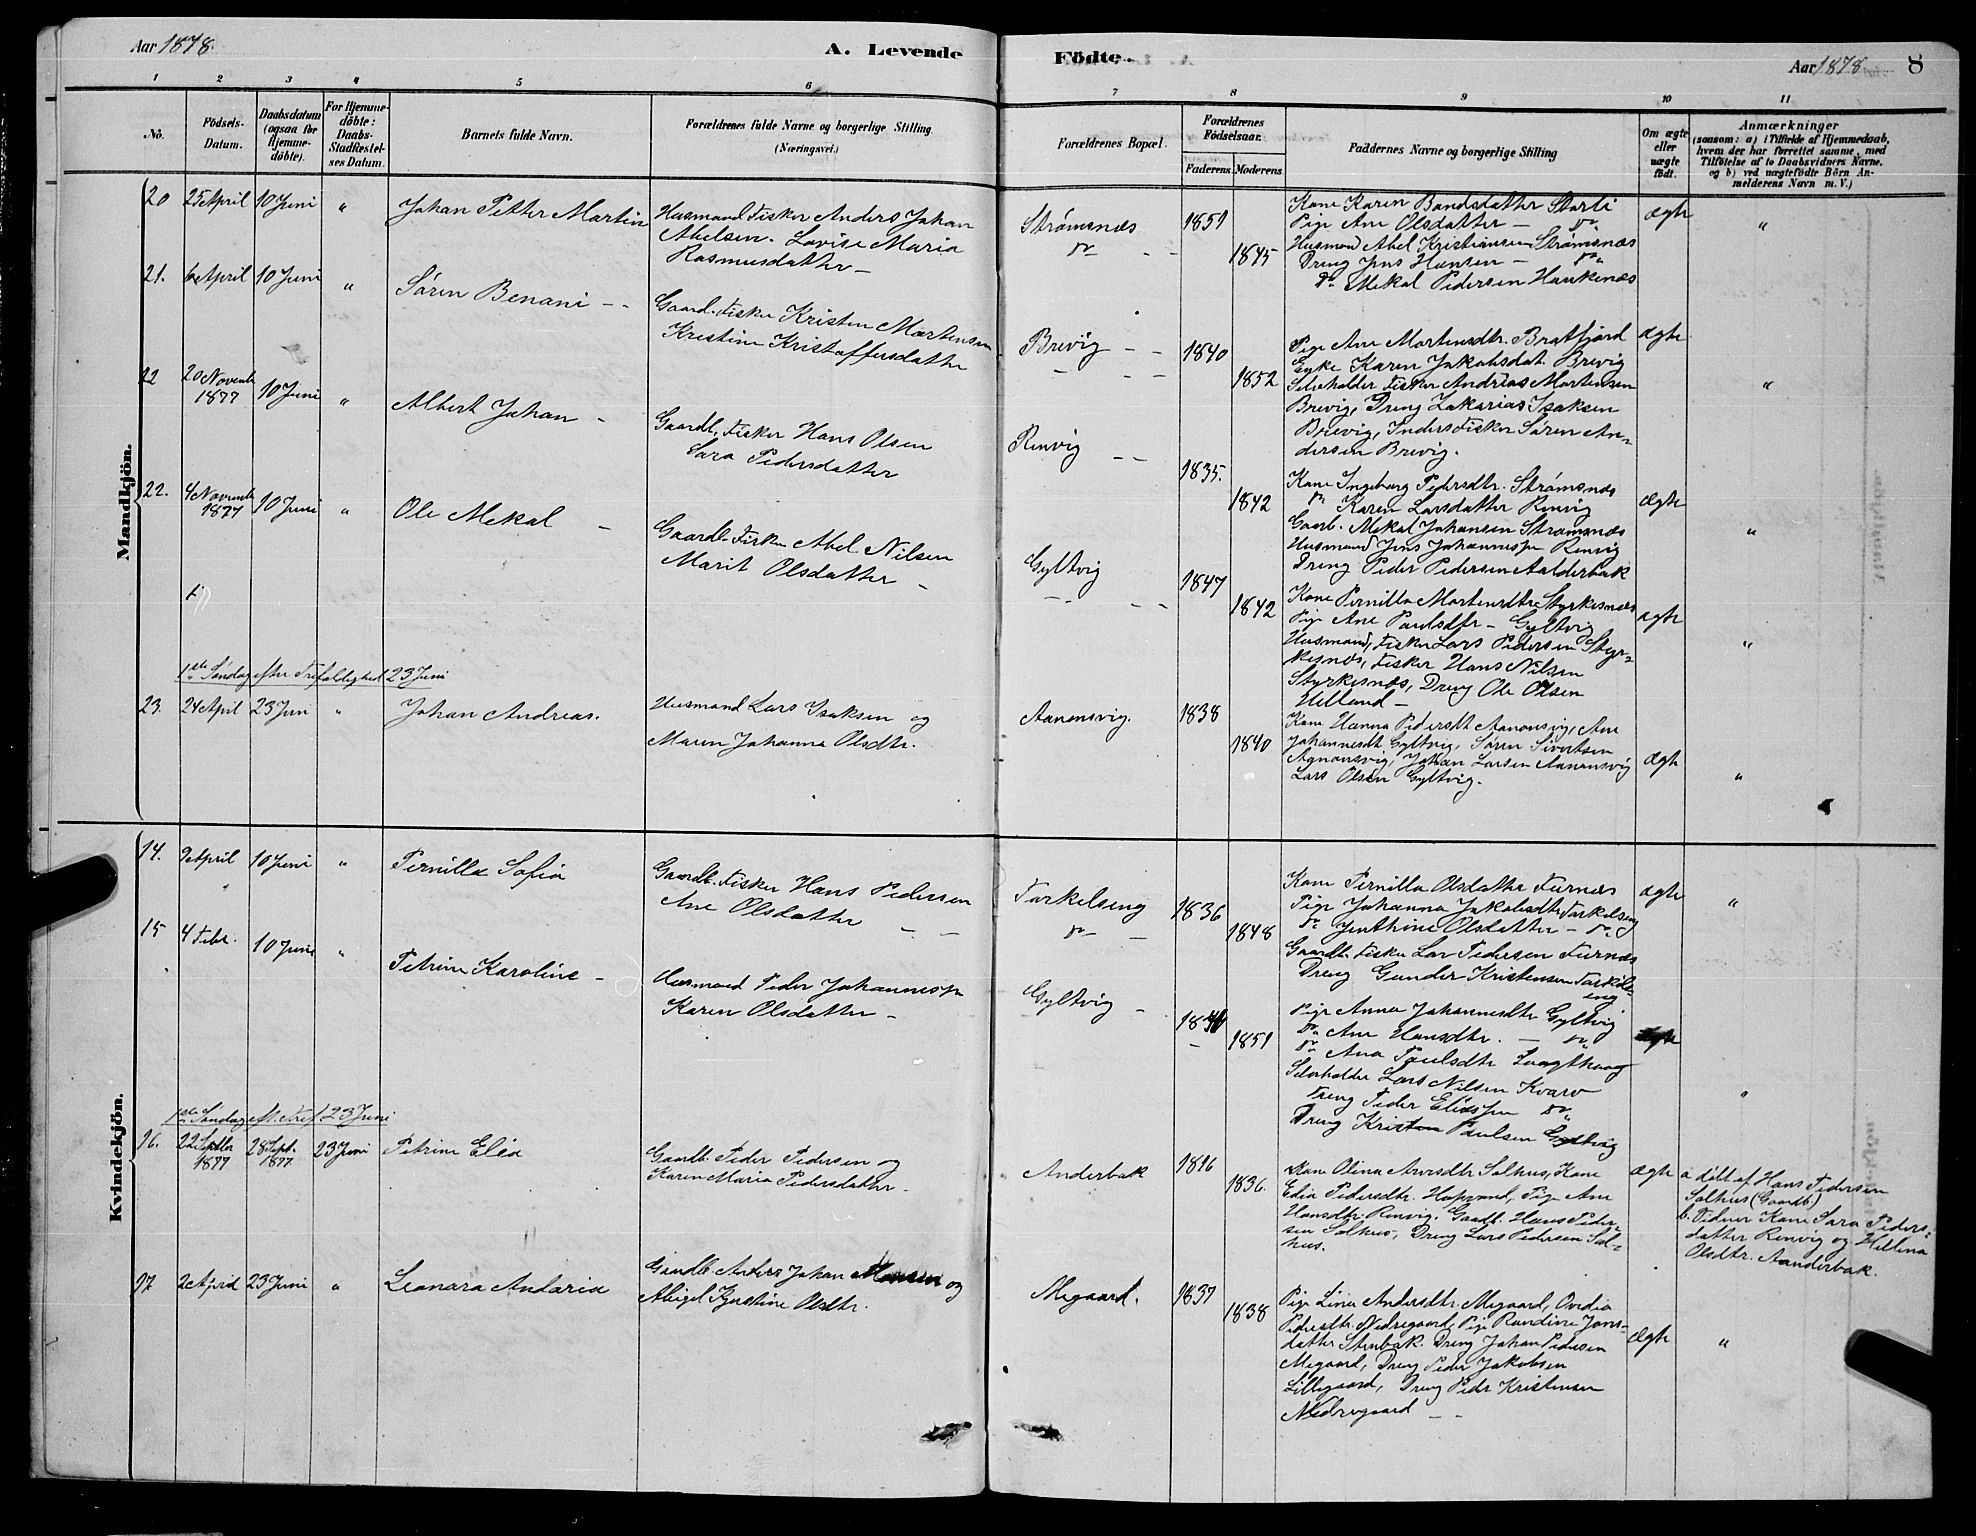 Aar 1878.
A. Levende
Födte.
Aar 1878
8
1 2 3 4 5 6
7 8 9 10 11
No.
Födsels-
Datum.
Daabsdatum
(ogsaa for
Hjemme-
döbte).
For Hjemme-
döbte:
Daabs-
Stadfæstel-
ses Datum.
Barnets fulde Navn.
Forældrenes fulde Navne og borgerlige Stilling
(Næringsvei.)
Forældrenes Bopæl.
Forældrenes
Födselsaar.
Faderens Moderens
Faddernes Navne og borgerlige Stilling
Om ægte
eller
uægte
födt.
Anmærkninger
(saasom: a) i Tilfælde af Hjemmedaab,
hvem der har forrettet samme, med
Tilföielse af to Daabsvidners Navne.
og b) ved uægtefödte Börn An-
melderens Navn m. V.)
Mandkjön.
20 25 April 10 Juni " Johan Petter Martin
Husmand Fisker Anders Johan
Abelsen. Lovise Maria
Rasmusdatter -
Strømsnæs 1851
do - - 1845
Kone Karen Bandsdatter Storli
Pige Ane Olsdatter - do
Husmand Abel Kristiansen Strømsnæs
Dreng Jens Hansen - do
do Mekal Pedersen Haukenæs
Ægte "
21. 6 April 10 Juni " Søren Benani - -
Gaardb. Fisker Kristen Martensen
Kristine Kristoffersdatter
Brevig - - 1840
- - - 1852
Pige Ane Martensdtr. Bratfjord
Enke Karen Jakobsdat. Brevig
Selveholder Fisker Andrias Mortensen
Brevig, Dreng Zakarias Isaksen
Brevig, Inders Fisker Søren An-
dersen Brevig.
Ægte "
22 20 Novemb 1877 10 Juni " Albert Johan -
Gaardb. Fisker Hans Olsen
Sara Pedersdatter
Renvig - - 1835.
1842
Kone Ingeborg Pedersdtr. Strømsnæs
do Karen Larsdatter Renvig
Gaarb. Mekal Johansen Strømsnæs
Husmand Jens Johannessen Renvig
Dreng Peder Pedersen Aalderbak
Ægte "
22. 4 Novemb 1877 10 Juni " Ole Mekal -
Gaardb. Fisker Abel Nilsen
Marit Olsdatter -
Gyltvig 1847
- - - 1842
Kone Pernilla Martensdtr Styrkesnæs
Pige Ane Paulsdtr - Gyltvig
Husmand, Fisker Lars Pedersen Styr-
kesnæs, Fisker Hans Nilsen
Styrkesnæs, Dreng Ole Olsen
Helland -
ægte "
1ste Søndag efter Trefoldighed 23 Juni
23. 24 April 23 Juni " Johan Andreas.
Husmand Lars Isaksen og
Maren Johanna Olsdtr.
Aanonsvig. 1838
1840
Kone Hanna Pedersdt Aanonsvig, Ane
Johannesdt Gyltvig, Søren Sivertsen
Aanonsvig, Johan Larsen Aanonsvig
Lars Olsen Gyltvig.
Ægte "
Kvindekjön.
14. 9 April 10 Juni " Pernilla Sofia
Gaardb. Fisker Hans Pedersen
Ane Olsdatter - -
Tørkelseng 1836
do - 1848
Kone Pernilla Olsdatter Furnæs
Pige Johanna Jakobsdtr Tørkelseng
do Jenthine Olsdatter - do
Gaardb. Fisker Lars Pedersen Furnæs
Dreng Gunder Kristensen Tørkels-
eng
Ægte "
15 4 Febr. 10 Juni " Petrine Karoline -
Husmand Peder Johannessen
Karen Olsdatter -
Gyltvig -
1851
Pige Anna Johannesdtr Gyltvig
do Ane Hansdtr. - do
do Ana Paulsdtr
Selveholder Lars Nilsen Kvarv
Dreng Peder Eliassen do
Dreng Kristen Paulsen Gyltvig
ægte "
1ste Søndag eft. Tref. 23 Juni
16. 22 Septbr 1877 28 Sept. 1877 23 Juni Petrine Elea
Gaardb. Peder Pedersen og
Karen Maria Pedersdatter.
Anderbak 1816
1836.
Kone Olina Arnesdtr Solhus, Kone
Edia Pedersdtr. Hopsund, Pige Ane
Hansdtr. Renvig. Gaardb. Hans Peder-
sen Solhus, Dreng Lars Pedersen Sol-
hus.
Ægte
a döbt af Hans Pedersen
Solhus (Gaardb)
b. Vidner Kone Sara Peders-
datter Renvig og Hellena
Olsdtr. Aanderbak.
17 2 April 23 Juni " Leonara Andaria
Gaardb Anders Johan Monsen og
Abigel Kjerstine Olsdtr.
Megaard. 1837
1838
Pige Lina Andersdtr. Megaard, Ovedia
Pedersdtr. Nedregaard, Pige Randine Jons-
datter Stenbak. Dreng Johan Pedersen
Megaard, Dreng Peder Jakobsen
Lillegaard, Dreng Peder Kristensen
Nedregaard - -
Ægte "